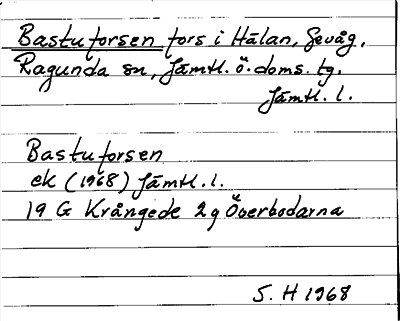 Bastuforsen fors i Hälan, Gevåg,
Ragunda sn, Jämtl. ö. doms. tg.
Jämtl. l.
Bastuforsen
ek (1968) Jämtl. l.
19 G Krångede 2 g Överbodarna
S. H 1968